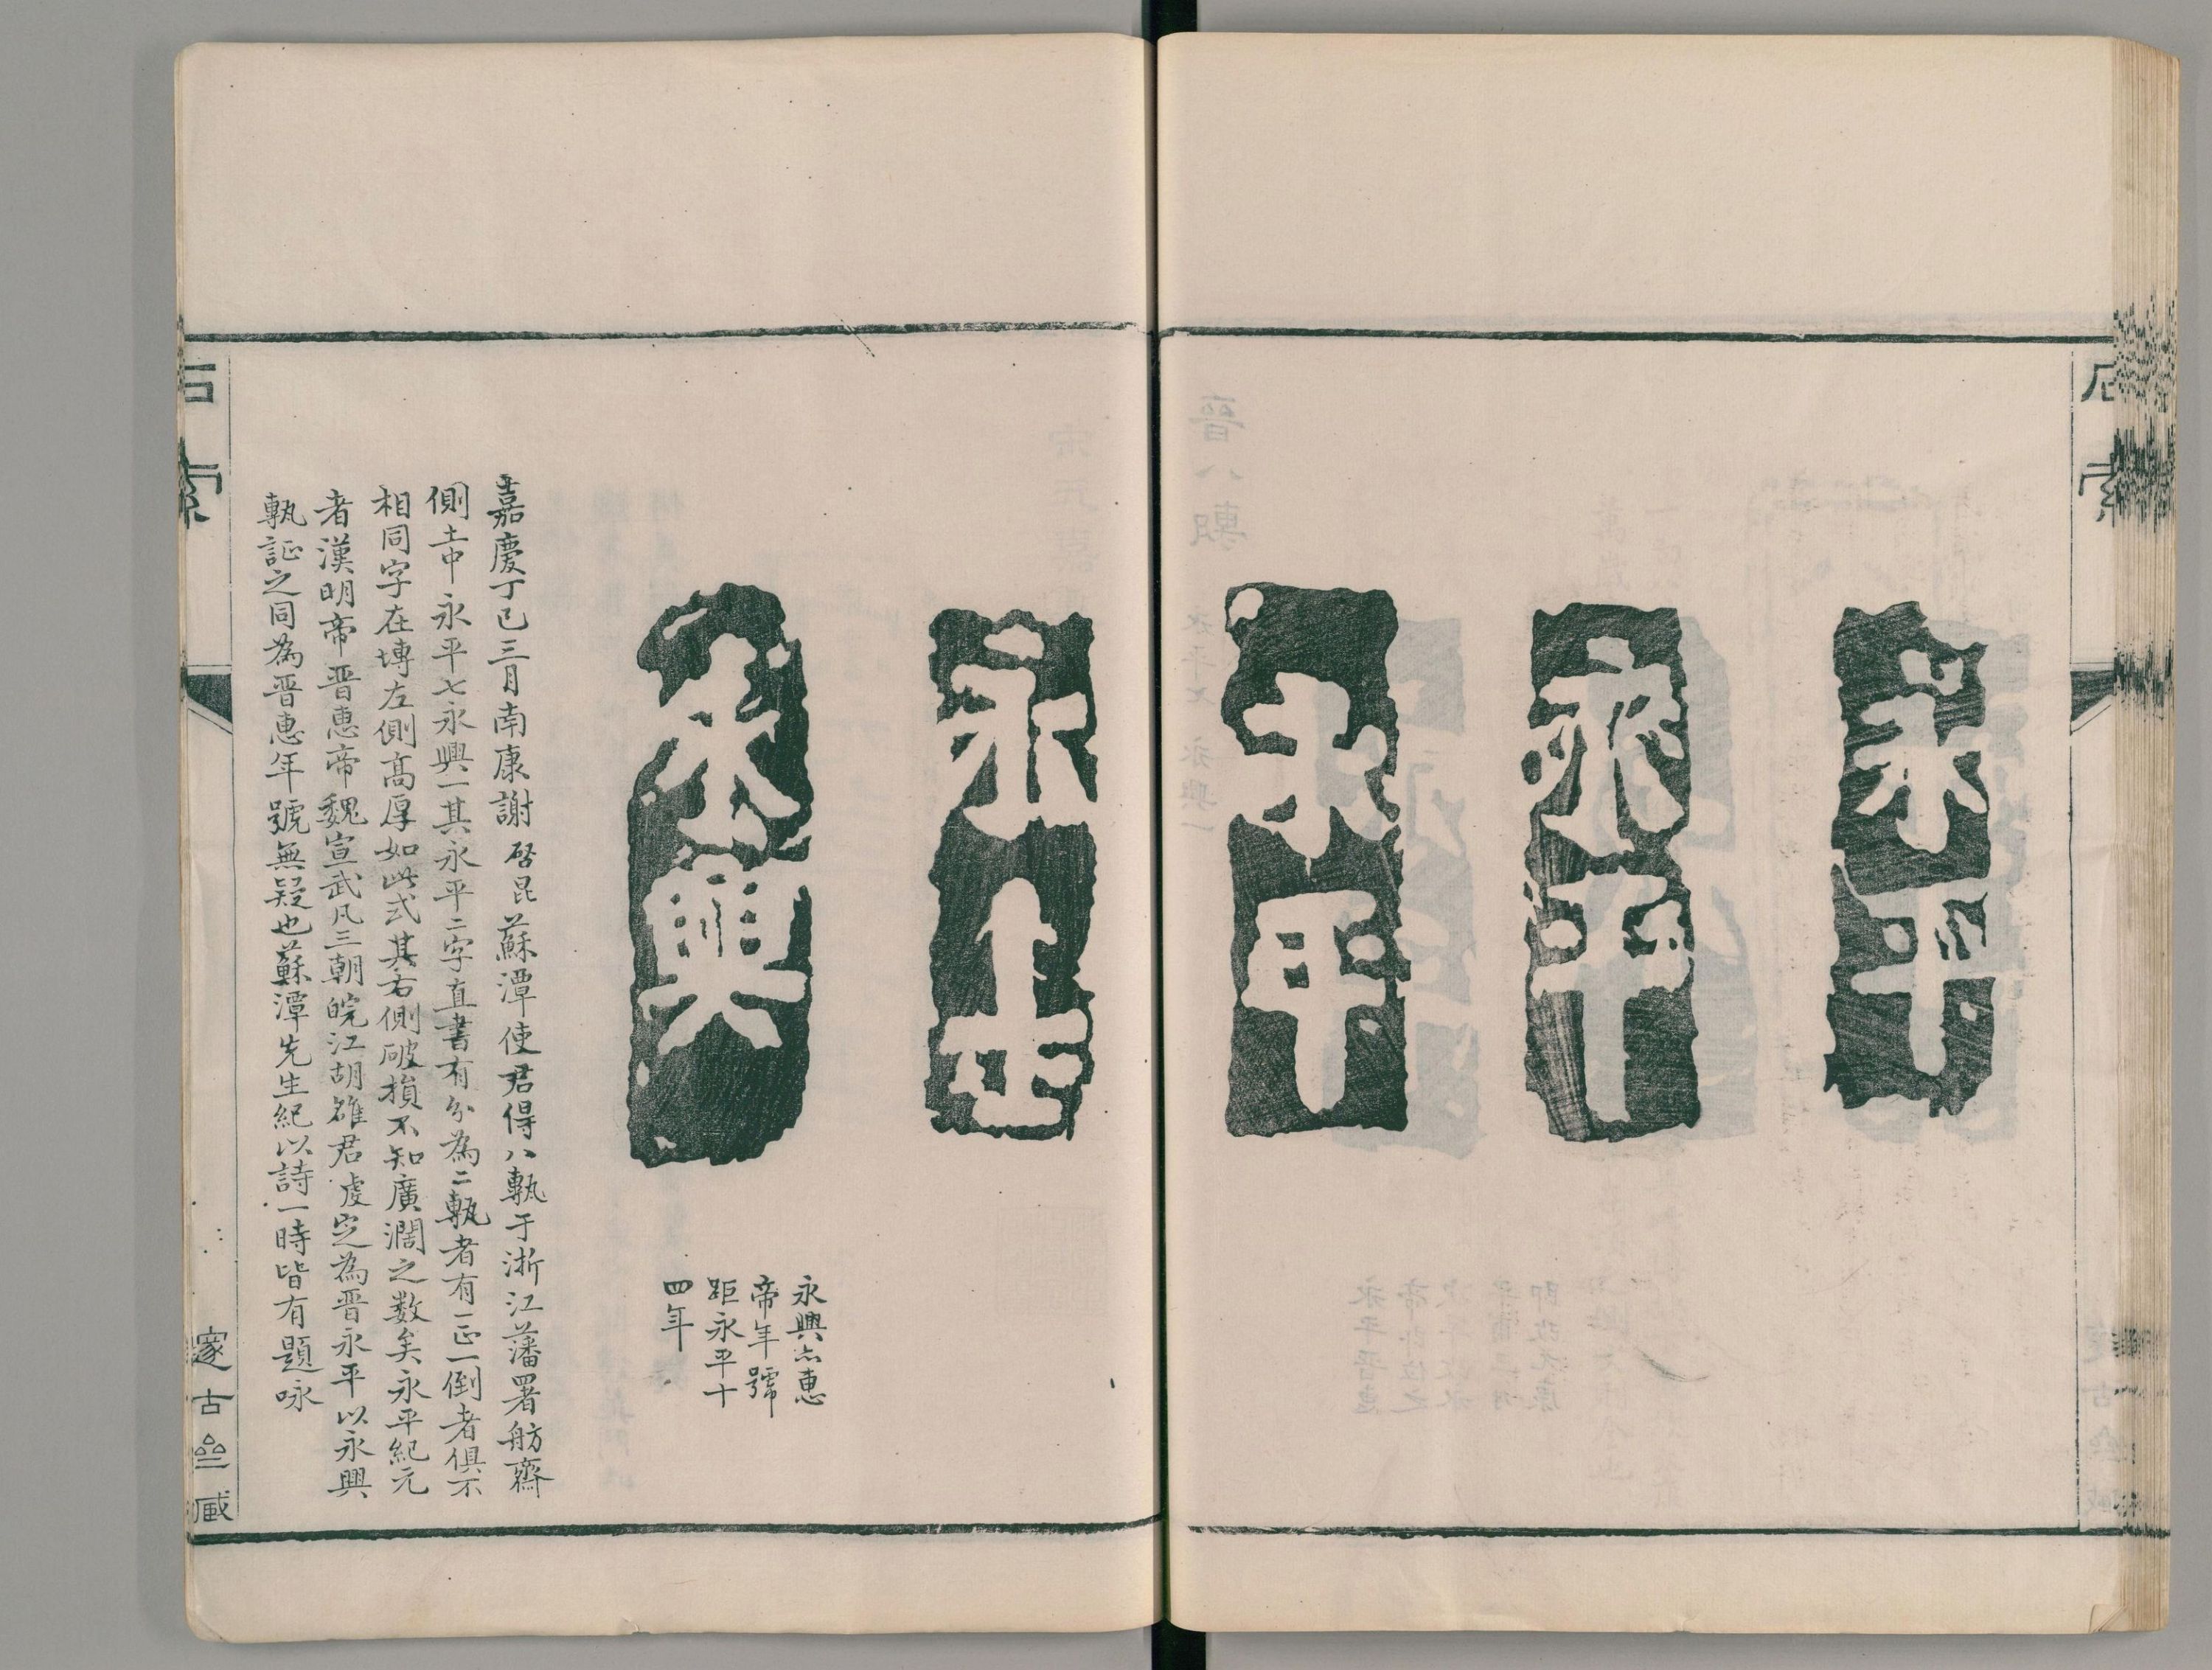 石索
永平
永平
永平
永平
永興
永興亦惠
帝年號
距永平十
四年
嘉慶丁巳三月南康謝啓昆蘇潭使君得八甎于浙江藩署舫齋
側土中永平七永興一其永平二字直書有分為二甎者有一正一倒者俱不
相同字在塼左側高厚如此式其右側破損不知廣濶之數矣永平紀元
者漢明帝晋惠帝魏宣武凡三朝皖江胡雒君虔定為晋永平以永興
甎証之同為晋惠年號無疑也蘇潭先生紀以詩一時皆有題咏
石索
邃古 藏